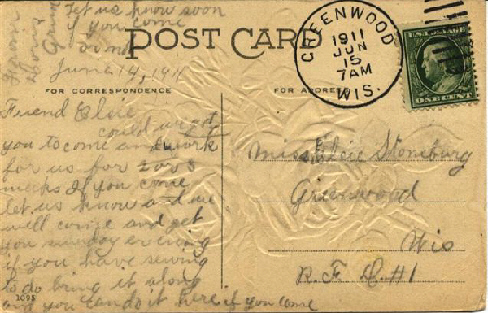 Let us know soon
if you come
POST CARD
June 14, 1911
FOR CORRESPONDENCE
FOR ADDRESS
GREENWOOD
1911
JUN
15
7AM
WIS.
ONE CENT
Friend Elsie
could we get
you to come and work
for us for 2 or 3
weeks If you come
let us know and we
will come and get
you sunday evening
if you have sewing
to do bring it along
and you can do it here if you come
Miss Elsie Stoneburg
Greenwood
Wis
R. F. D. #1
3095